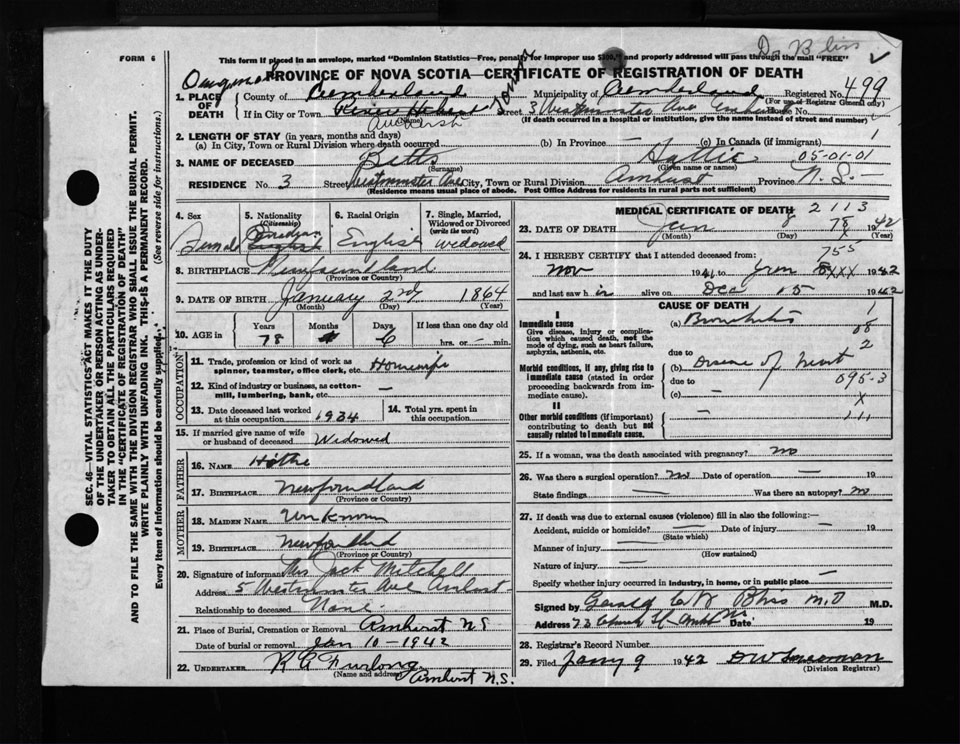 Dr Bliss ✓
FORM 6 This form if placed in an envelope, marked "Dominion Statistics—Free, penalty for improper use $300," all addressed will pass through the mail "FREE"
PROVINCE OF NOVA SCOTIA—CERTIFICATE OF REGISTRATION OF DEATH
1. PLACE OF DEATH County of Cumberland Municipality of Cumberland Registered No. 499
(For use of Registrar General only)
If in City or Town Amherst Street 3 Westminster Ave Amherst
(If death occurred in a hospital or institution, give the name instead of street and number)
2. LENGTH OF STAY (in years, months and days)
(a) In City, Town or Rural Division where death occurred (b) In Province — (c) In Canada (if immigrant) 1
3. NAME OF DECEASED Betts Hattie 05-01-01
(Surname) (Given name or names)
RESIDENCE No. 3 Street Westminster Ave City, Town or Rural Division Amherst Province N.S.
(Residence means usual place of abode. Post Office Address for residents in rural parts not sufficient)
4. Sex Female
5. Nationality (Citizenship) Canadian English
6. Racial Origin English
7. Single, Married, Widowed or Divorced (write the word) widowed
8. BIRTHPLACE Newfoundland
(Province or Country)
9. DATE OF BIRTH January 2nd 1864
(Month) (Day) (Year)
10. AGE in Years 78 Months Days 6 If less than one day old hrs. or — min.
OCCUPATION
11. Trade, profession or kind of work as spinner, teamster, office clerk, etc. Housewife
12. Kind of industry or business, as cotton-mill, lumbering, bank, etc. —
13. Date deceased last worked at this occupation 1934
14. Total yrs. spent in this occupation
15. If married give name of wife or husband of deceased Widowed
FATHER
16. NAME
17. BIRTHPLACE Newfoundland
(Province or Country)
MOTHER
18. MAIDEN NAME Unknown
19. BIRTHPLACE Newfoundland
(Province or Country)
20. Signature of informant Mrs Jack Mitchell
Address 5 Westminster Ave Amherst
Relationship to deceased None
21. Place of Burial, Cremation or Removal Amherst N S
Date of burial or removal Jan 10 - 1942
22. UNDERTAKER R C Furlong
(Name and address) Amherst N.S.
MEDICAL CERTIFICATE OF DEATH 2113
23. DATE OF DEATH Jan 8 78 1942
(Month) (Day) (Year)
755
24. I HEREBY CERTIFY that I attended deceased from:
Nov 1941 to Jan 8 XXX 1942
and last saw h alive on Dec 15 1942
CAUSE OF DEATH 1
I
Immediate cause
Give disease, injury or complication which caused death, not the mode of dying, such as heart failure, asphyxia, asthenia, etc.
(a) Bronchitis 08
2
due to
Morbid conditions, if any, giving rise to immediate cause (stated in order proceeding backwards from immediate cause).
(b) Disease of heart
due to 095-3
(c) — X
II
Other morbid conditions (if important) contributing to death but not causally related to immediate cause.
— 111
25. If a woman, was the death associated with pregnancy? no
26. Was there a surgical operation? no Date of operation — 19
State findings — Was there an autopsy? no
27. If death was due to external causes (violence) fill in also the following:—
Accident, suicide or homicide? — Date of injury — 19
(State which)
Manner of injury —
(How sustained)
Nature of injury —
Specify whether injury occurred in industry, in home, or in public place —
Signed by Gerald C W Bliss M.D M.D.
Address 73 Church St Amherst NS Date 19
28. Registrar's Record Number
29. Filed Jany 9 1942
(Division Registrar)
SEC. 46—VITAL STATISTICS ACT MAKES IT THE DUTY
OF THE UNDERTAKER OR PERSON ACTING AS UNDERTAKER
TO OBTAIN ALL THE PARTICULARS REQUIRED
IN THE "CERTIFICATE OF REGISTRATION OF DEATH"
AND TO FILE THE SAME WITH THE DIVISION REGISTRAR WHO SHALL ISSUE THE BURIAL PERMIT.
WRITE PLAINLY WITH UNFADING INK. THIS IS A PERMANENT RECORD.
Every item of information should be carefully supplied. (See reverse side for instructions.)